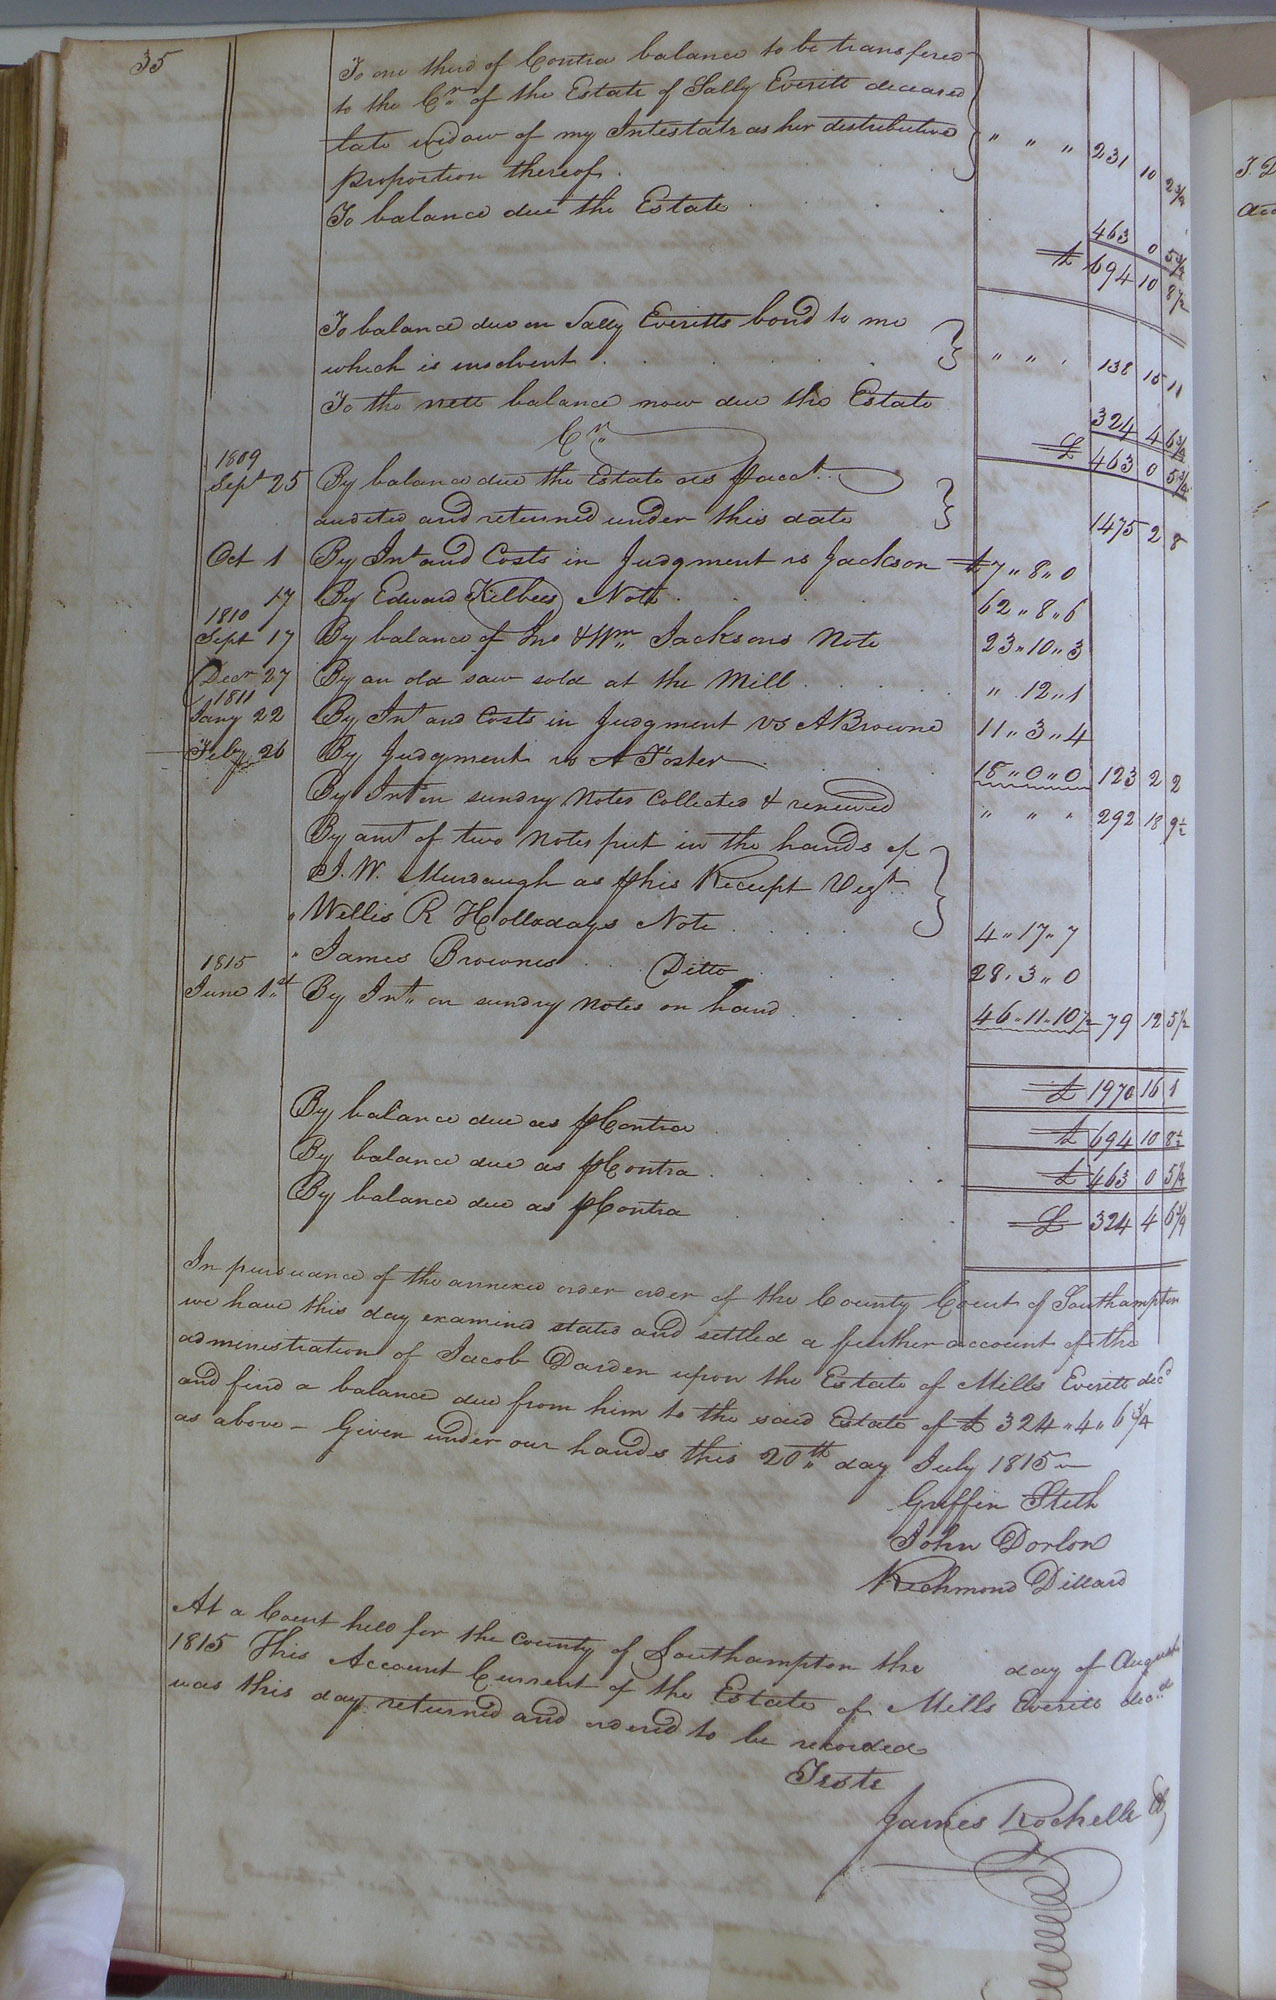 35
To one third of Contra balance to be transfered
to the Cr. of the Estate of Sally Everitt deceased
late widow of my Intestate as her distributive
proportion thereof. " " " 231 10 2 3/4
To balance due the Estate 463 0 5 3/4
£ 694 10 8 1/2
To balance due on Sally Everitts bond to me
which is insolvent " " " 138 15 11
To the nett balance now due the Estate 324 4 6 3/4
£ 463 0 5 3/4
Cr.
1809
Sept 25 By balance due the Estate as p acct.
audited and returned under this date 1475 2 8
Oct 1 By Int and Costs in Judgment vs Jackson £7 " 8 " 0
17 By Edward Kilbees Note 62 " 8 " 6
1810
Sept 17 By balance of Jno & Wm Jacksons Note 23 " 10 " 3
Decr 27 By an old saw sold at the Mill " 12 " 1
1811
Jany 22 By Int and Costs in Judgment vs A Browne 11 " 3 " 4
Feby 26 By Judgment vs A Foster 18 " 0 " 0 123 2 2
By Int on sundry Notes Collected & renewed " " " 292 18 9 1/2
By amt of two Notes put in the hands of
J. W. Murdaugh as p his Receipt Vizt.
" Willis R Holladays Note 4 " 17 " 7
" James Brownes Ditto 28 " 3 " 0
1815
June 1st By Int. on sundry Notes on hand 46 " 11 " 10 1/2 79 12 5 1/2
£ 1970 16 1
By balance due as p Contra £ 694 10 8 1/2
By balance due as p Contra £ 463 0 5 3/4
By balance due as p Contra £ 324 4 6 3/4
In pursuance of the annexed order order of the County Court of Southampton
we have this day examined stated and settled a further account of the
administration of Jacob Darden upon the Estate of Mills Everitt decd
and find a balance due from him to the said Estate of £ 324 " 4 " 6 3/4
as above - Given under our hands this 20th day July 1815
Griffin Stith
John Dorlon
Richmond Dillard
At a Court held for the County of Southampton the day of August
1815 This Account Current of the Estate of Mills Everitt decd
was this day returned and ordered to be recorded
Teste
James Rochelle